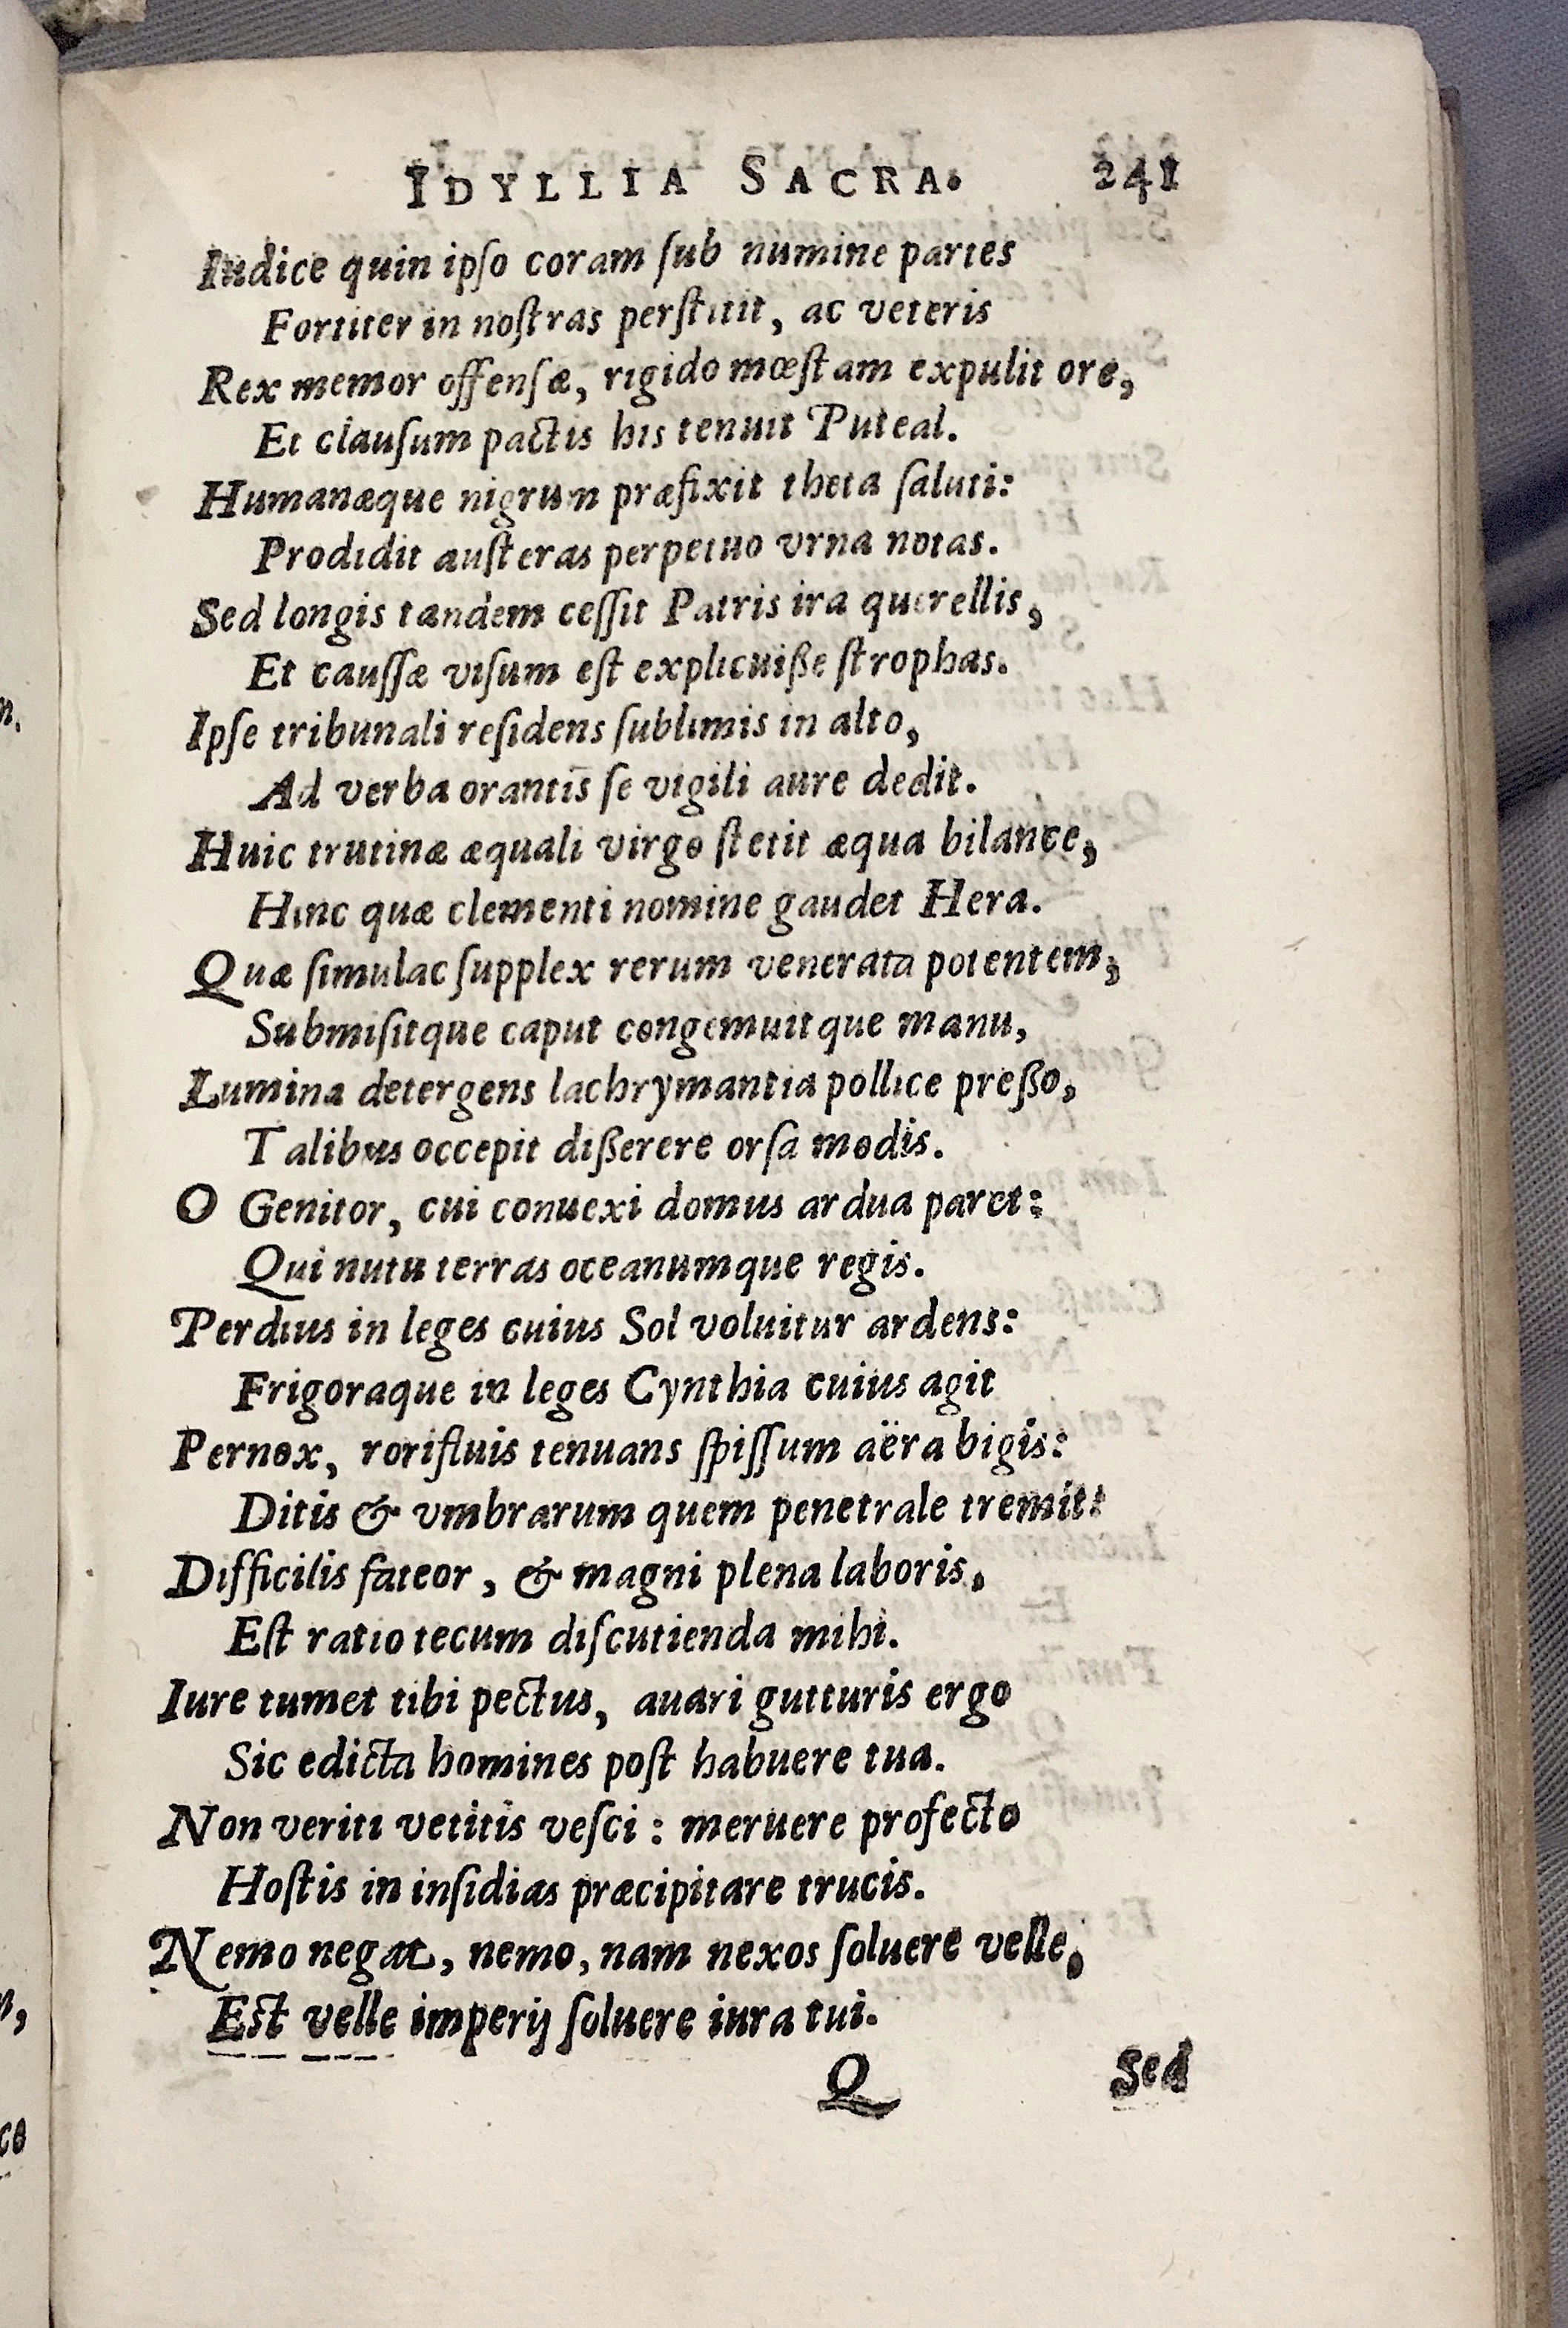 IDYLLIA SACRA. 241
Iudice quin ipſo coram ſub numine partes
Fortiter in noſtras perſtitit, ac veteris
Rex memor offenſæ, rigido mœſtam expulit ore,
Et clauſum pactis his tenuit Puteal.
Humanæque nigrum præfixit theta ſaluti:
Prodidit auſteras perpetuo vrna notas.
Sed longis tandem ceſſit Patris ira querellis,
Et cauſſæ viſum eſt explicuiße ſtrophas.
Ipſe tribunali reſidens ſublimis in alto,
Ad verba orantis ſe vigili aure dedit.
Huic trutinæ æquali virgo ſtetit æqua bilance,
Hinc quæ clementi nomine gaudet Hera.
Quæ ſimulac ſupplex rerum venerata potentem,
Submiſitque caput congemuitque manu,
Lumina detergens lachrymantia pollice preßo,
Talibus occepit dißerere orſa modis.
O Genitor, cui conuexi domus ardua paret:
Qui nutu terras oceanumque regis.
Perdius in leges cuius Sol voluitur ardens:
Frigoraque in leges Cynthia cuius agit
Pernox, rorifluis tenuans ſpiſſum aëra bigis:
Ditis & vmbrarum quem penetrale tremit:
Difficilis fateor, & magni plena laboris,
Eſt ratio tecum diſcutienda mihi.
Iure tumet tibi pectus, auari gutturis ergo
Sic edicta homines poſt habuere tua.
Non veriti vetitis veſci: meruere profecto
Hoſtis in inſidias præcipitare trucis.
Nemo negat, nemo, nam nexos ſoluere velle,
Eſt velle imperij ſoluere iura tui.
Q Sed